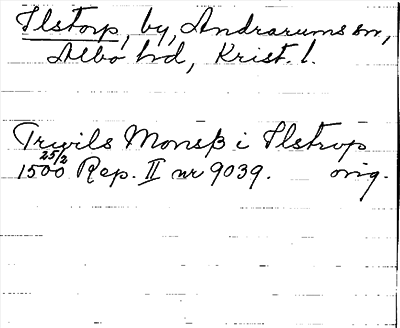 Ilstorp, by, Andrarums sn,
Albo hd, Krist. l.
Truils Monsß i Ilstrop
25/2
1500 Rep. II nr 9039. orig.